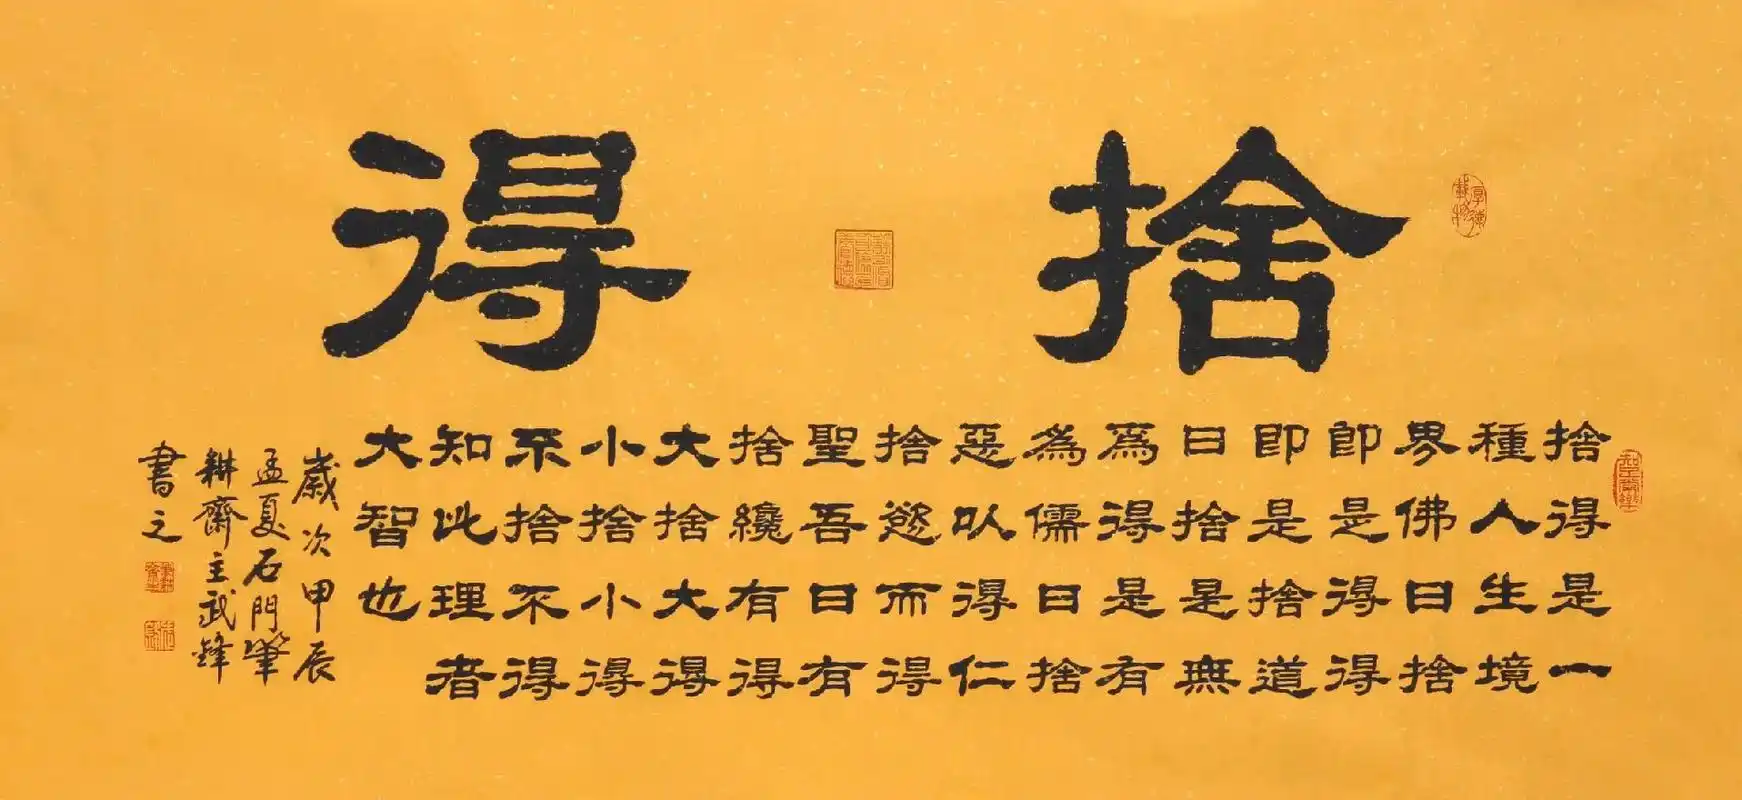 捨得
厚德載物
知足常樂
捨得是一
種人生境
界佛曰捨
即是得得
即是捨道
曰捨是無
為得是有
為儒曰捨
惡以得仁
捨慾而得
聖吾曰有
捨纔有得
大捨大得
小捨小得
不捨不得
知此理者
大智也
歲次甲辰
孟夏石門筆
耕齋主武鋒
書之